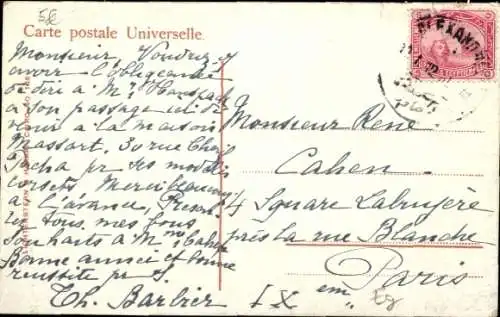 Carte postale Universelle.
Monsieur Voudrez
avoir l'obligeance
de dire à Mr
à son passage ici de
venir à la maison
Massart, 30 rue
Pacha pr ses modèles
corsets, Merci beaucoup
à l'avance, Présen-
tez tous, mes bons
souhaits à Mme Cahen
Bonne année et bonne
réussite pr
Th. Barbier
ALEXAND
Monsieur René
Cahen
4 Square Labruyère
près la rue Blanche
Paris
IX em